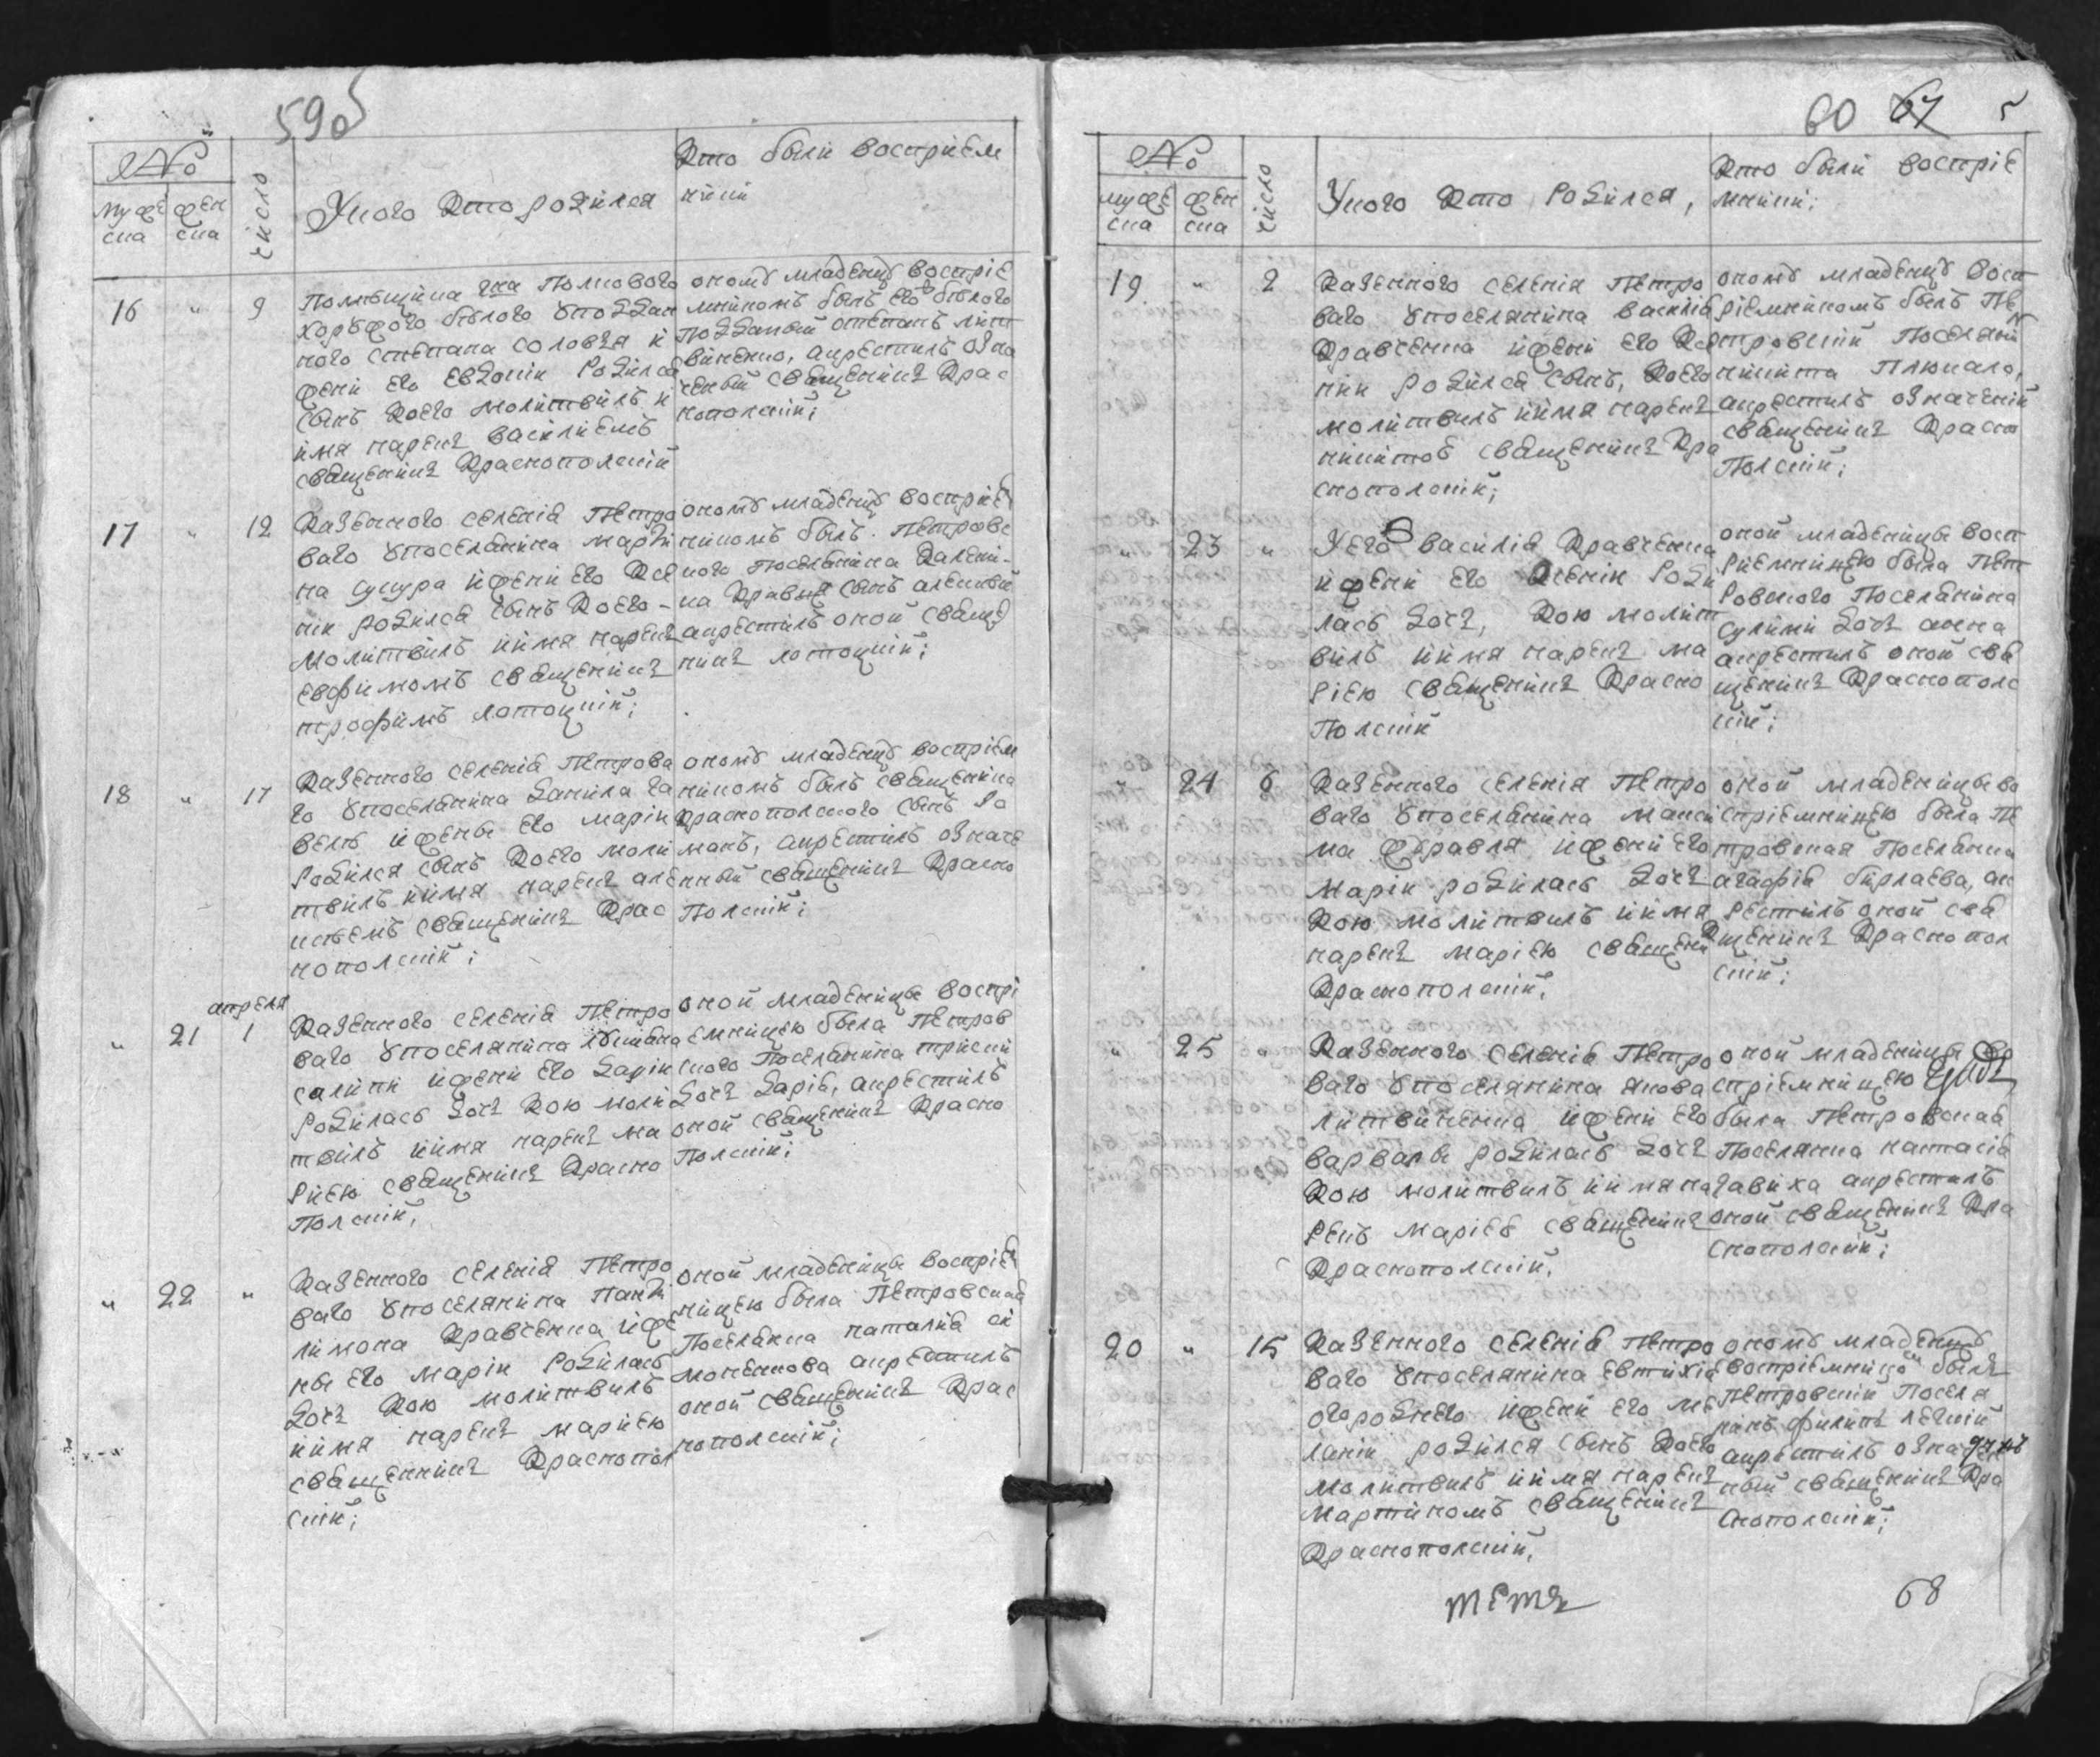 59об
№
муже
ска
жен
ска
число
У кого кто родился
Кто были восприем
ники
16 " 9
Помещика гна Полковаго
хорунжого белого уподдан
ного степана соловья и
жени его Евдокии Родился
сынъ коего молитвилъ и
имя нареч василиемъ
священикъ Краснополский
ономѣ младенцѣ восприе
мникомъ былъ его белого
подданый степанъ лит
виненко, акрестилъ озна
ченый священикъ Крас
нополский;
17 " 12
Казенного селения Петро
ваго упоселянина марти
на сукура ижени его Ксе
нии родился сынъ коего
молитвилъ иимя нареч
евфимомъ священикъ
трофимъ лотоцкий;
ономѣ младенцѣ восприе
никомъ былъ Петровс
кого поселянина Калени-
ка Кравця сынъ алексѣй
акрестилъ оной свяще
никъ лотоцкий;
18 " 17
Казенного селения Петрова
го упоселянина данила га
велы ижены его марии
Родился сынъ коего моли
твилъ иимя нареч але
ксѣемъ священикъ Крас
нополский;
ономѣ младенцѣ восприем
никомъ былъ священика
Краснополского сынъ Ро
манъ, акрестилъ означе
нный священикъ Красно
полский;
апреля
" 21 1
Казенного селения Петро
ваго упоселянина
ижени его дарии
Родилась дочь кою моли
твилъ иимя нареч ма
риею священикъ Красно
полский,
оной младеницѣ воспри
емницею была Петров
ского поселянина
дочь дария, акрестилъ
оной священикъ Красно
полский;
" 22 "
Казенного селения Петро
ваго упоселянина панти
лимона Кравченка иже
ны его марии Родилась
дочь кою молитвилъ
иимя нареч мариею
священникъ Краснопол
ский;
оной младеницѣ восприе
ницею была Петровская
поселянка наталия си
моненкова акрестилъ
оной священикъ Крас
нополский;
60 67
№
муже
ска
жен
ска
число
У кого кто Родился,
Кто были восприе
мники;
19 " 2
Казенного селения Петро
ваго упоселянина василия
Кравченка ижени его Ксе
нии родился сынъ, коего
молитвилъ иимя нареч
никитоѣ священикъ Кра
снополский;
ономѣ младенцѣ восп
риемникомъ былъ Пе
тровский поселянин
никита Плюнало,
акрестилъ означений
священикъ Красно
полский;
" 23 "
У его василия Кравченка
ижени его Ксении Роди
лась дочь, кою молит
вилъ иимя нареч ма
риею священикъ Красно
полский
оной младеницѣ восп
риемницею была Пет
ровского поселянина
сулими дочь анна
акрестилъ оной свя
щеникъ Краснополс
кий;
" 24 6
Казенного селения Петро
ваго упоселянина макси
ма журавля ижени его
марии родилась дочь
кою молитвилъ иимя
нареч мариею священик
Краснополский,
оной младеницѣ во
сприемницею была Пе
тровская поселянка
агафия бурлаева, ак
рестилъ оной свя
щеникъ Краснопол
ский;
" 25 "
Казенного селения Петро
ваго упоселянина якова
литвиненка ижени его
варвары родилась дочь
кою молитвилъ иимя на
речъ мариеѣ священикъ
Краснополский,
оной младеницѣ во
сприемницею
была Петровская
поселянка настасия
гавиха акрестилъ
оной священикъ Кра
снополский;
20 " 15
Казенного селения Петро
ваго упоселянина евтихия
огороднего ижени его ме
лании родился сынъ коего
молитвилъ иимя нареч
мартиномъ священикъ
Краснополский,
ономѣ младенцѣ
восприемникомъ былъ
Петровский поселя
нинъ филипъ легкий
акрестилъ означен
ный священикъ Кра
снополский;
68